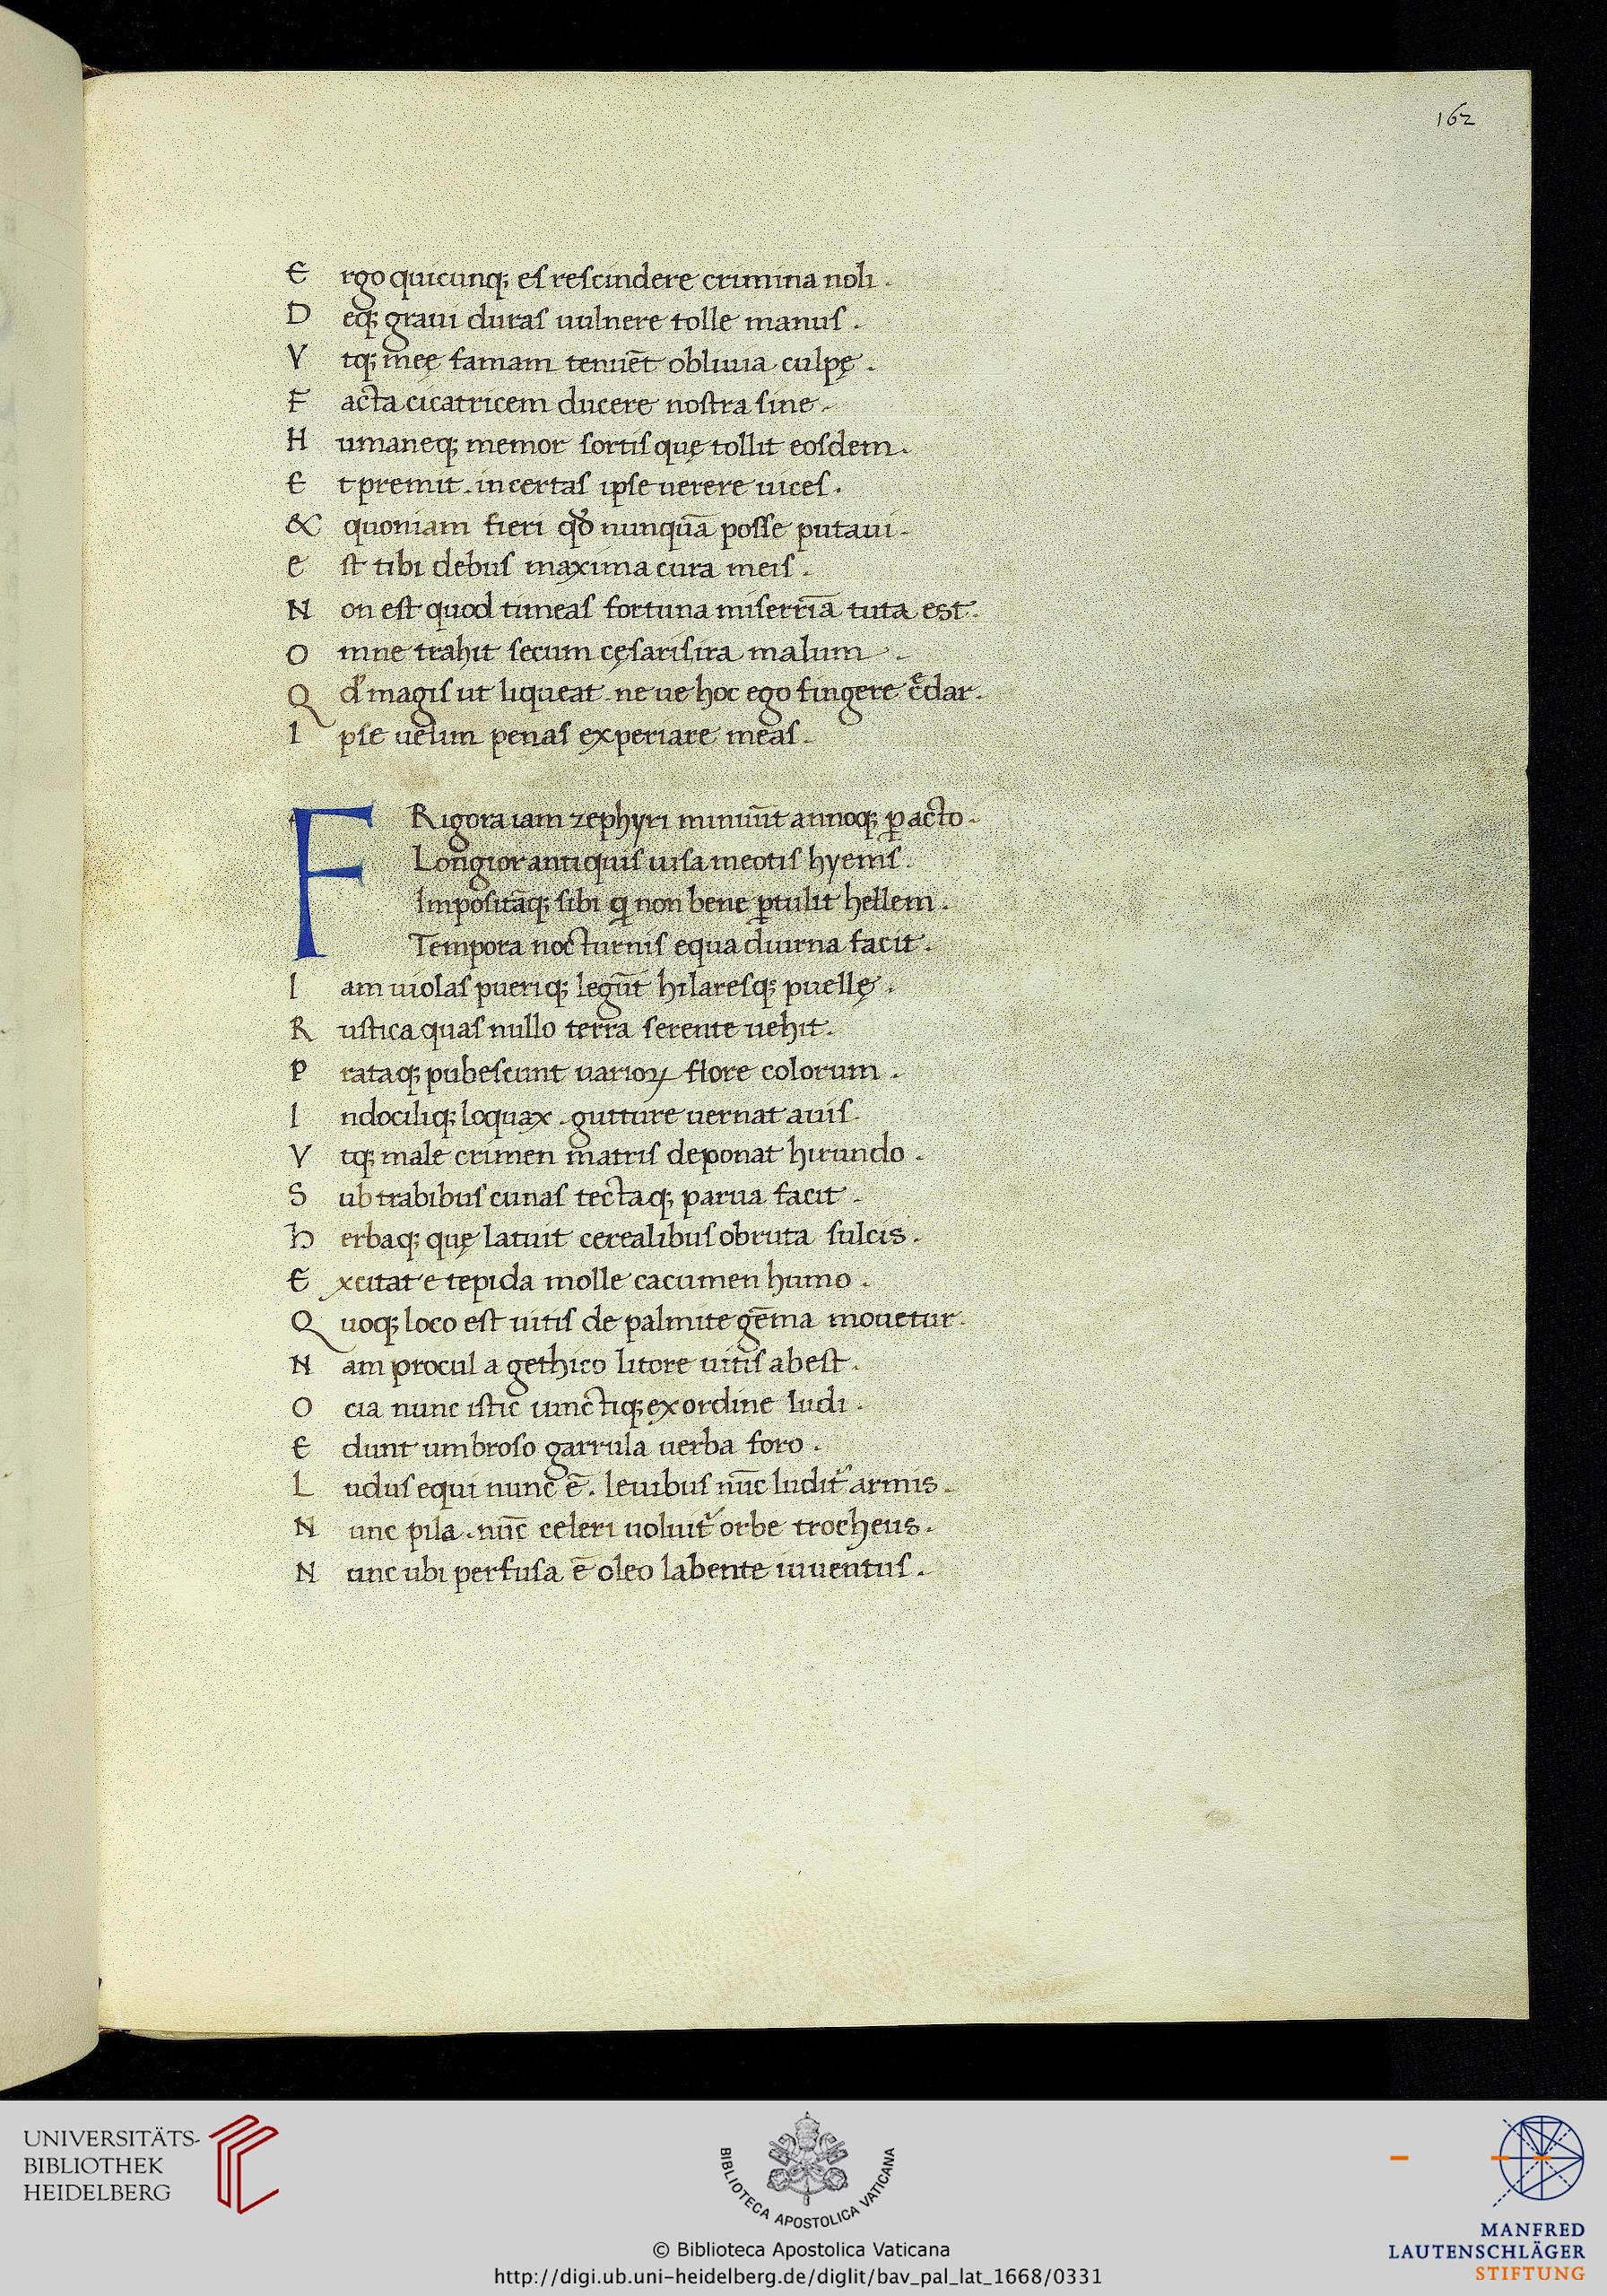 162
E rgo quicunq; es rescindere crimina noli.
D eq; graui duras uulnere tolle manus.
V tq; meę famam tenuēt obliuia culpę.
F acta cicatricem ducere nostra sine.
H umaneq; memor sortis quę tollit eosdem.
E t premit. incertas ipse uerere uices.
& quoniam fieri qđ nunquā posse putaui.
e st tibi debus maxima cura meis.
N on est quod timeas fortuna miserriā tuta est.
O mne trahit secum cęsaris ira malum.
Q d' magis ut liqueat. ne ue hoc ego fingere c̄edar.
I pse uelim penas experiare meas.
F Rigora iam zephyri minuūt annoq; ꝑacto.
Longior antiquis uisa meotis hyems.
Impositāq; sibi qͥ non bene ꝑtulit hellem.
Tempora nocturnis equa diurna facit.
I am uiolas pueriq; legūt hilaresq; puellę.
R ustica quas nullo terra serente uehit.
P rataq; pubescunt uarioꝝ flore colorum.
I ndociliq; loquax. gutture uernat auis.
V tq; male crimen matris deponat hirundo.
S ub trabibus cunas tectaq; parua facit.
h erbaq; quę latuit cerealibus obruta sulcis.
E xcitat e tepida molle cacumen humo.
Q uoq; loco est uitis de palmite gēma mouetur.
N am procul a gethico litore uitis abest.
O cia nunc istic iunctiq; ex ordine ludi.
E dunt umbroso garrula uerba foro.
L udus equi nunc ē. leuibus nūc ludit᷑ armis.
N unc pila. nūc celeri uoluit᷑ orbe trocheus.
N unc ubi perfusa ē oleo labente iuuentus.
UNIVERSITÄTS-
BIBLIOTHEK
HEIDELBERG
BIBLIOTECA APOSTOLICA VATICANA
© Biblioteca Apostolica Vaticana
http://digi.ub.uni-heidelberg.de/diglit/bav_pal_lat_1668/0331
MANFRED
LAUTENSCHLÄGER
STIFTUNG